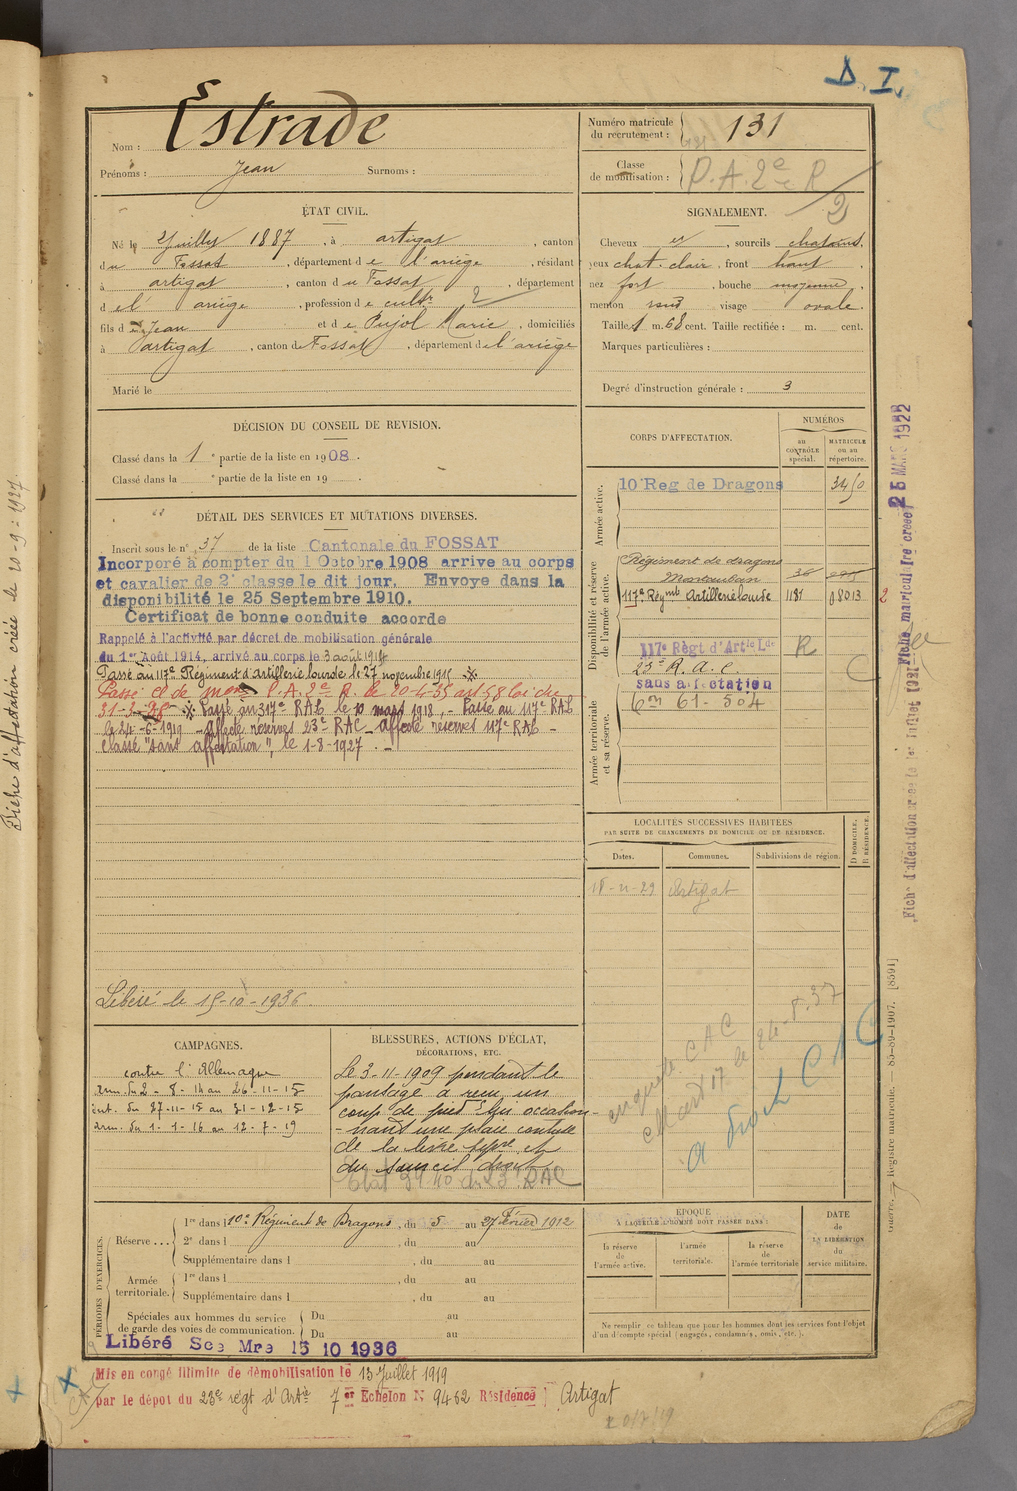 D. I.
Nom : Estrade
Prénoms : Jean Surnoms :
Numéro matricule du recrutement : 131
Classe de mobilisation : P.A. 2e R
2
ÉTAT CIVIL.
Né le 2 juillet 1887, à artigat, canton
du Fossat, département de l'ariège, résidant
à artigat, canton du Fossat, département
de l' ariège, profession de cultr 2
fils de Jean et de Pujol Marie, domiciliés
à artigat, canton de Fossat, département de l'ariège
Marié le
SIGNALEMENT.
Cheveux et, sourcils chatains,
yeux chat. clair, front haut,
nez fort, bouche moyenne,
menton rond visage ovale.
Taille 1 m. 68 cent. Taille rectifiée : m. cent.
Marques particulières :
Degré d'instruction générale : 3
DÉCISION DU CONSEIL DE REVISION.
Classé dans la 1 e partie de la liste en 1908.
Classé dans la e partie de la liste en 19 .
DÉTAIL DES SERVICES ET MUTATIONS DIVERSES.
Inscrit sous le n° 37 de la liste Cantonale du FOSSAT
Incorporé à compter du 1 Octobre 1908 arrive au corps
et cavalier de 2e classe le dit jour. Envoye dans la
disponibilité le 25 Septembre 1910.
Certificat de bonne conduite accorde
Rappelé à l'activité par décret de mobilisation générale
du 1er Août 1914, arrivé au corps le 3 août 1914
Passé au 117e Régiment d'artillerie lourde le 27 novembre 1915 ※
Passé cl de mon P.A. 2e R. le 20-4-35 art 58 loi du
31-3-28 ※ Passé au 317e RAL le 10 mars 1918, - Passé au 117e RAL
le 24-6-1919 - affecté réserves 23e RAC - affecté réserves 117e RAL -
Classé "sans affectation", le 1-8-1927. -
Libéré le 15-10-1936.
CORPS D'AFFECTATION.
NUMÉROS
au CONTRÔLE spécial.
MATRICULE ou au répertoire.
Armée active.
10e Reg de Dragons 3450
Disponibilité et réserve de l'armée active.
Régiment de dragons
Montauban
117e Régmt Artillerie lourde 1181 08013 2
117e Règt d'Artie Lde R
23e R.A.C.
sans affectation
Armée territoriale et sa réserve.
61-504
LOCALITÉS SUCCESSIVES HABITÉES
PAR SUITE DE CHANGEMENTS DE DOMICILE OU DE RÉSIDENCE.
Dates. Communes. Subdivisions de région. D DOMICILE, R RÉSIDENCE.
18-11-29 Artigat
enquete CAC
CAC
CAMPAGNES.
contre l'Allemagne
arm. du 2-8-14 au 26-11-15
int. du 27-11-15 au 31-12-15
arm. du 1-1-16 au 12-7-19
BLESSURES, ACTIONS D'ÉCLAT,
DÉCORATIONS, ETC.
Le 3-11-1909 pendant le
pansage a reçu un
coup de pied lui occasion-
-nant une plaie contuse
de la lèvre supre et
du sourcil droit
PÉRIODES D'EXERCICES.
Réserve ... 1re dans l 10e Régiment de Dragons, du 5 au 27 Février 1912
2e dans l , du au
Supplémentaire dans l , du au
Armée territoriale. 1re dans l , du au
Supplémentaire dans l , du au
Spéciales aux hommes du service de garde des voies de communication. Du au
Du au
Libéré Sce Mre 15 10 1936
EPOQUE
À LAQUELLE L'HOMME DOIT PASSER DANS :
la réserve de l'armée active.
l'armée territoriale.
la réserve de l'armée territoriale
DATE de LA LIBÉRATION du service militaire.
Ne remplir ce tableau que pour les hommes dont les services font l'objet
d'un décompte spécial (engagés, condamnés, omis, etc.).
Mis en congé illimité de démobilisation le 13 Juillet 1919
par le dépot du 23e régt d'Artie 7er Echelon N° 9462 Résidence } Artigat
Fiche d'affectation créée le 20-9-1927.
25 MARS 1922
Guerre. — Registre matricule. — 85-89-1907. [8591]